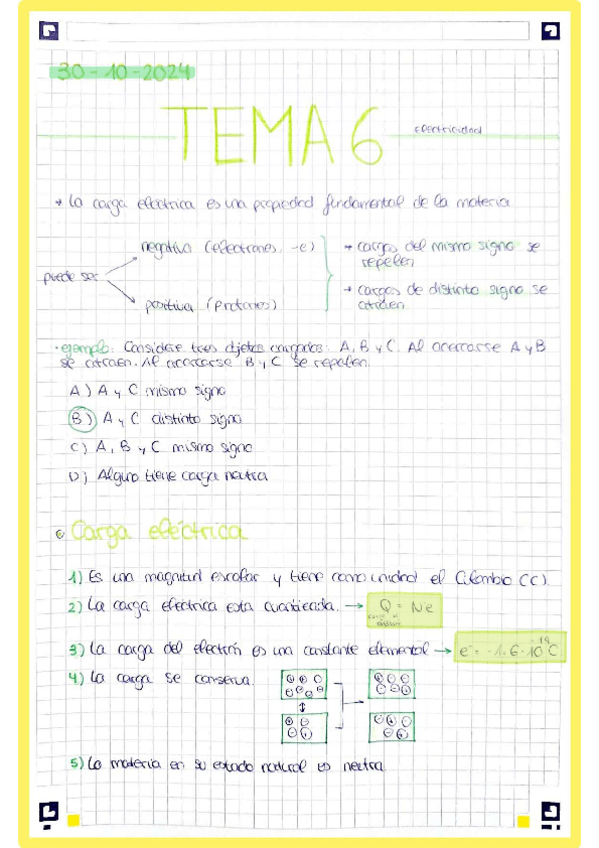 30-10-2024
TEMA 6 electricidad
→ La carga eléctrica es una propiedad fundamental de la materia
puede ser
negativa (electrones, -e)
positiva (protones)
→ cargas del mismo signo se
repelen
→ cargas de distinto signo se
atraen
· ejemplo: Considere tres objetos cargados: A, B y C. Al acercarse A y B
se atraen. Al acercarse B y C se repelen.
A) A y C mismo signo
B) A y C distinto signo
C) A, B y C mismo signo
D) Alguno tiene carga neutra
Carga eléctrica
1) Es una magnitud escalar y tiene como unidad el Culombio (C).
2) La carga eléctrica esta cuantizada. → Q = Ne
3) La carga del electrón es una constante elemental → e = -1,6·10⁻¹⁹ C
4) La carga se conserva.
5) La materia en su estado natural es neutra